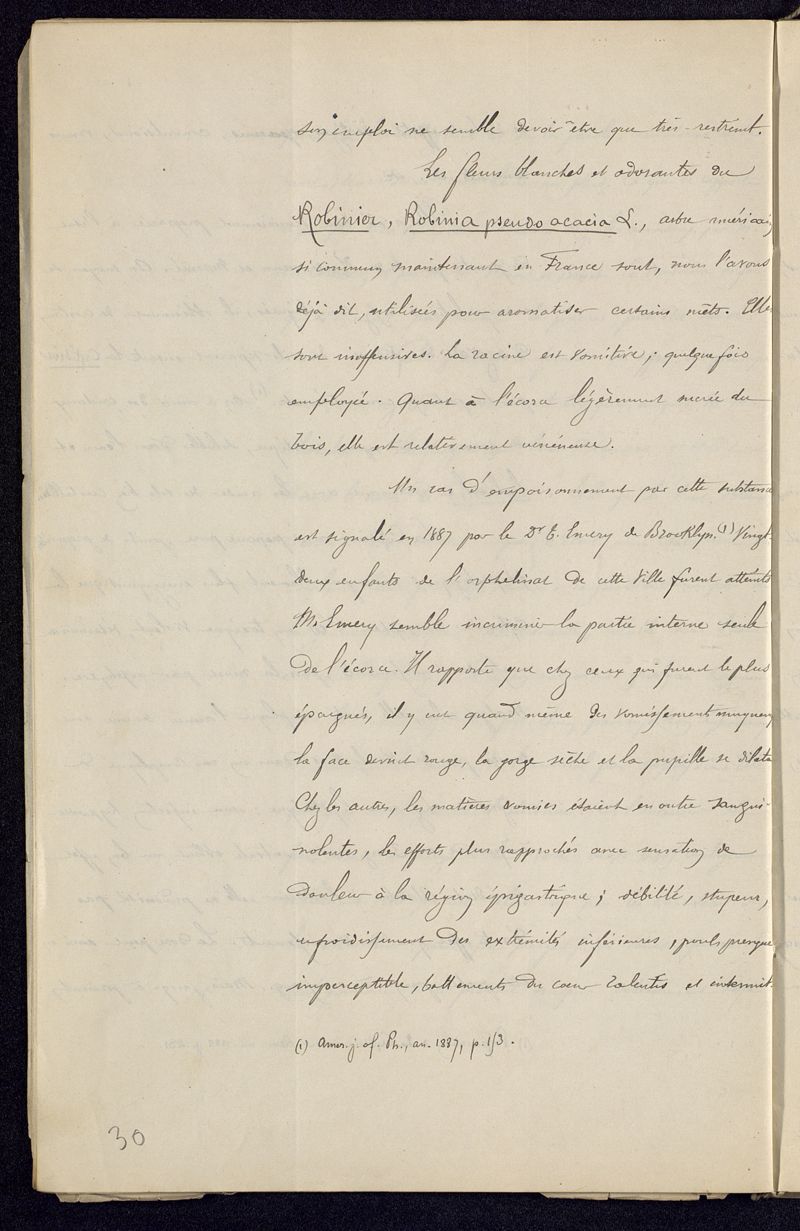 son emploi ne semble devoir être que très-restreint.
Les fleurs blanches et odorantes du
Robinier, Robinia pseudo acacia L., arbre américain
si commun maintenant en France sont, nous l'avons
déjà dit, utilisées pour aromatiser certains mets. Elles
sont inoffensives. La racine est vomitive; quelquefois
employée. Quant à l'écorce légèrement sucrée du
bois, elle est relativement vénéneuse.
Un cas d'empoisonnement par cette substance
est signalé en 1887 par le Dr E. Emery de Brooklyn.(1) Vingt-
deux enfants de l'orphelinat de cette ville furent atteints
M. Emery semble incriminer la partie interne seule
de l'écorce. Il rapporte que chez ceux qui furent le plus
épargnés, il y eut quand même des vomissements muqueux
la face devint rouge, la gorge sèche et la pupille se dilata
Chez les autres, les matières vomies étaient en outre sangui-
nolentes, les efforts plus rapprochés avec sensation de
douleur à la région épigastrique; débilité, stupeur,
refroidissement des extrémités inférieures, pouls presque
imperceptible, battements du coeur ralentis et intermit.
(1) Amer. j. of. Ph., an. 1887, p. 153.
30